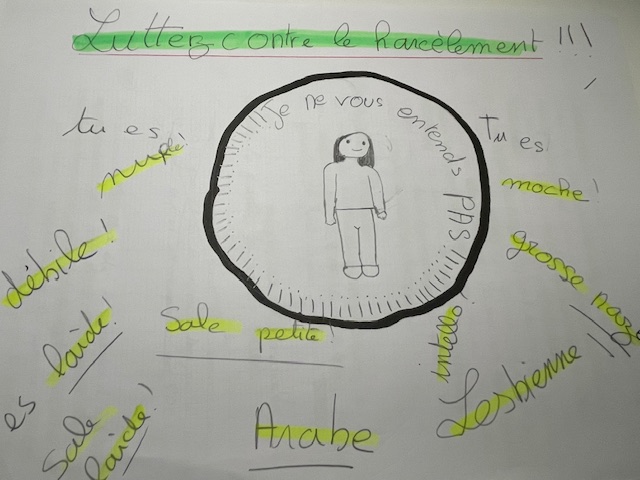 Luttez contre le harcèlement !!!
Je ne vous entends PAS
tu es
débile !
es laide !
Sale laide !
Sale petite !
Arabe
Tu es
moche !
grosse naze
intello !
Lesbienne !!